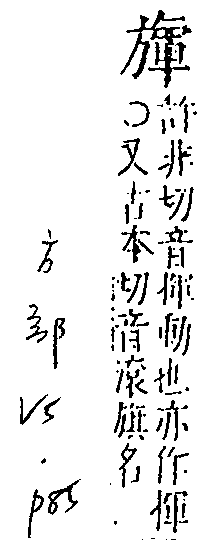 㫎
許非切音揮動也亦作揮
○又古本切音滾旗名
方部
V5.
p85